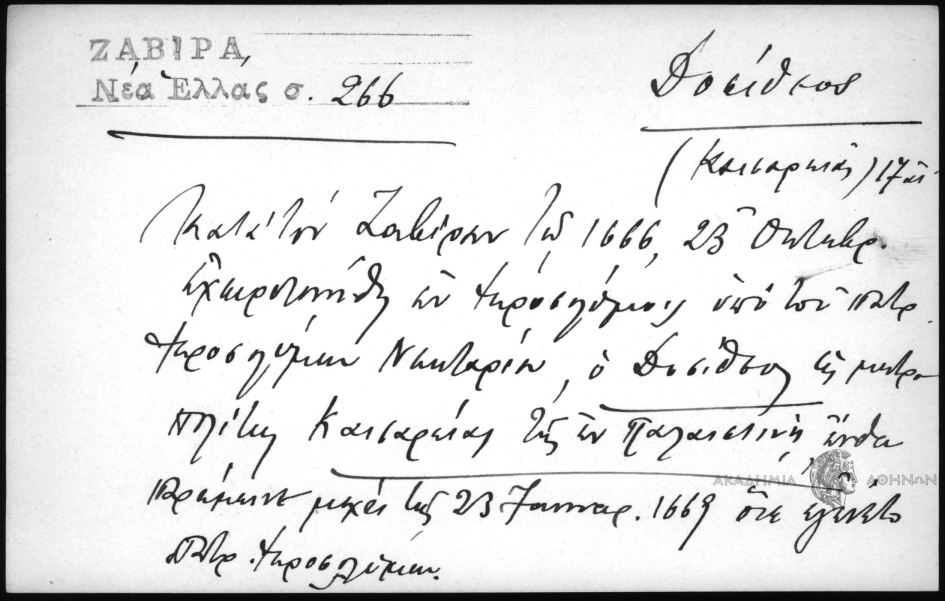 ΖΑΒΙΡΑ,
Νέα Ἑλλας σ. 266
Δοσίθεος
(Καισαρείας) 17 αἰ
Κατά τόν Ζαβίραν τῷ 1666, 23 Ὀκτωβρ.
ἐχειροτονήθη ἐν Ἱεροσολύμοις ὑπό τοῦ Πατρ.
Ἱεροσολύμων Νεκταρίου, ὁ Δοσίθεος εἰς μητρο
πολίτην Καισαρείας τῆς ἐν Παλαιστίνῃ, ἔνθα
παρέμεινε μέχρι τῆς 23 Ἰανουαρ. 1669 ὅτε ἐγένετο
Πατρ. Ἱεροσολύμων.
ΑΚΑΔΗΜΙΑ ΑΘΗΝΩΝ